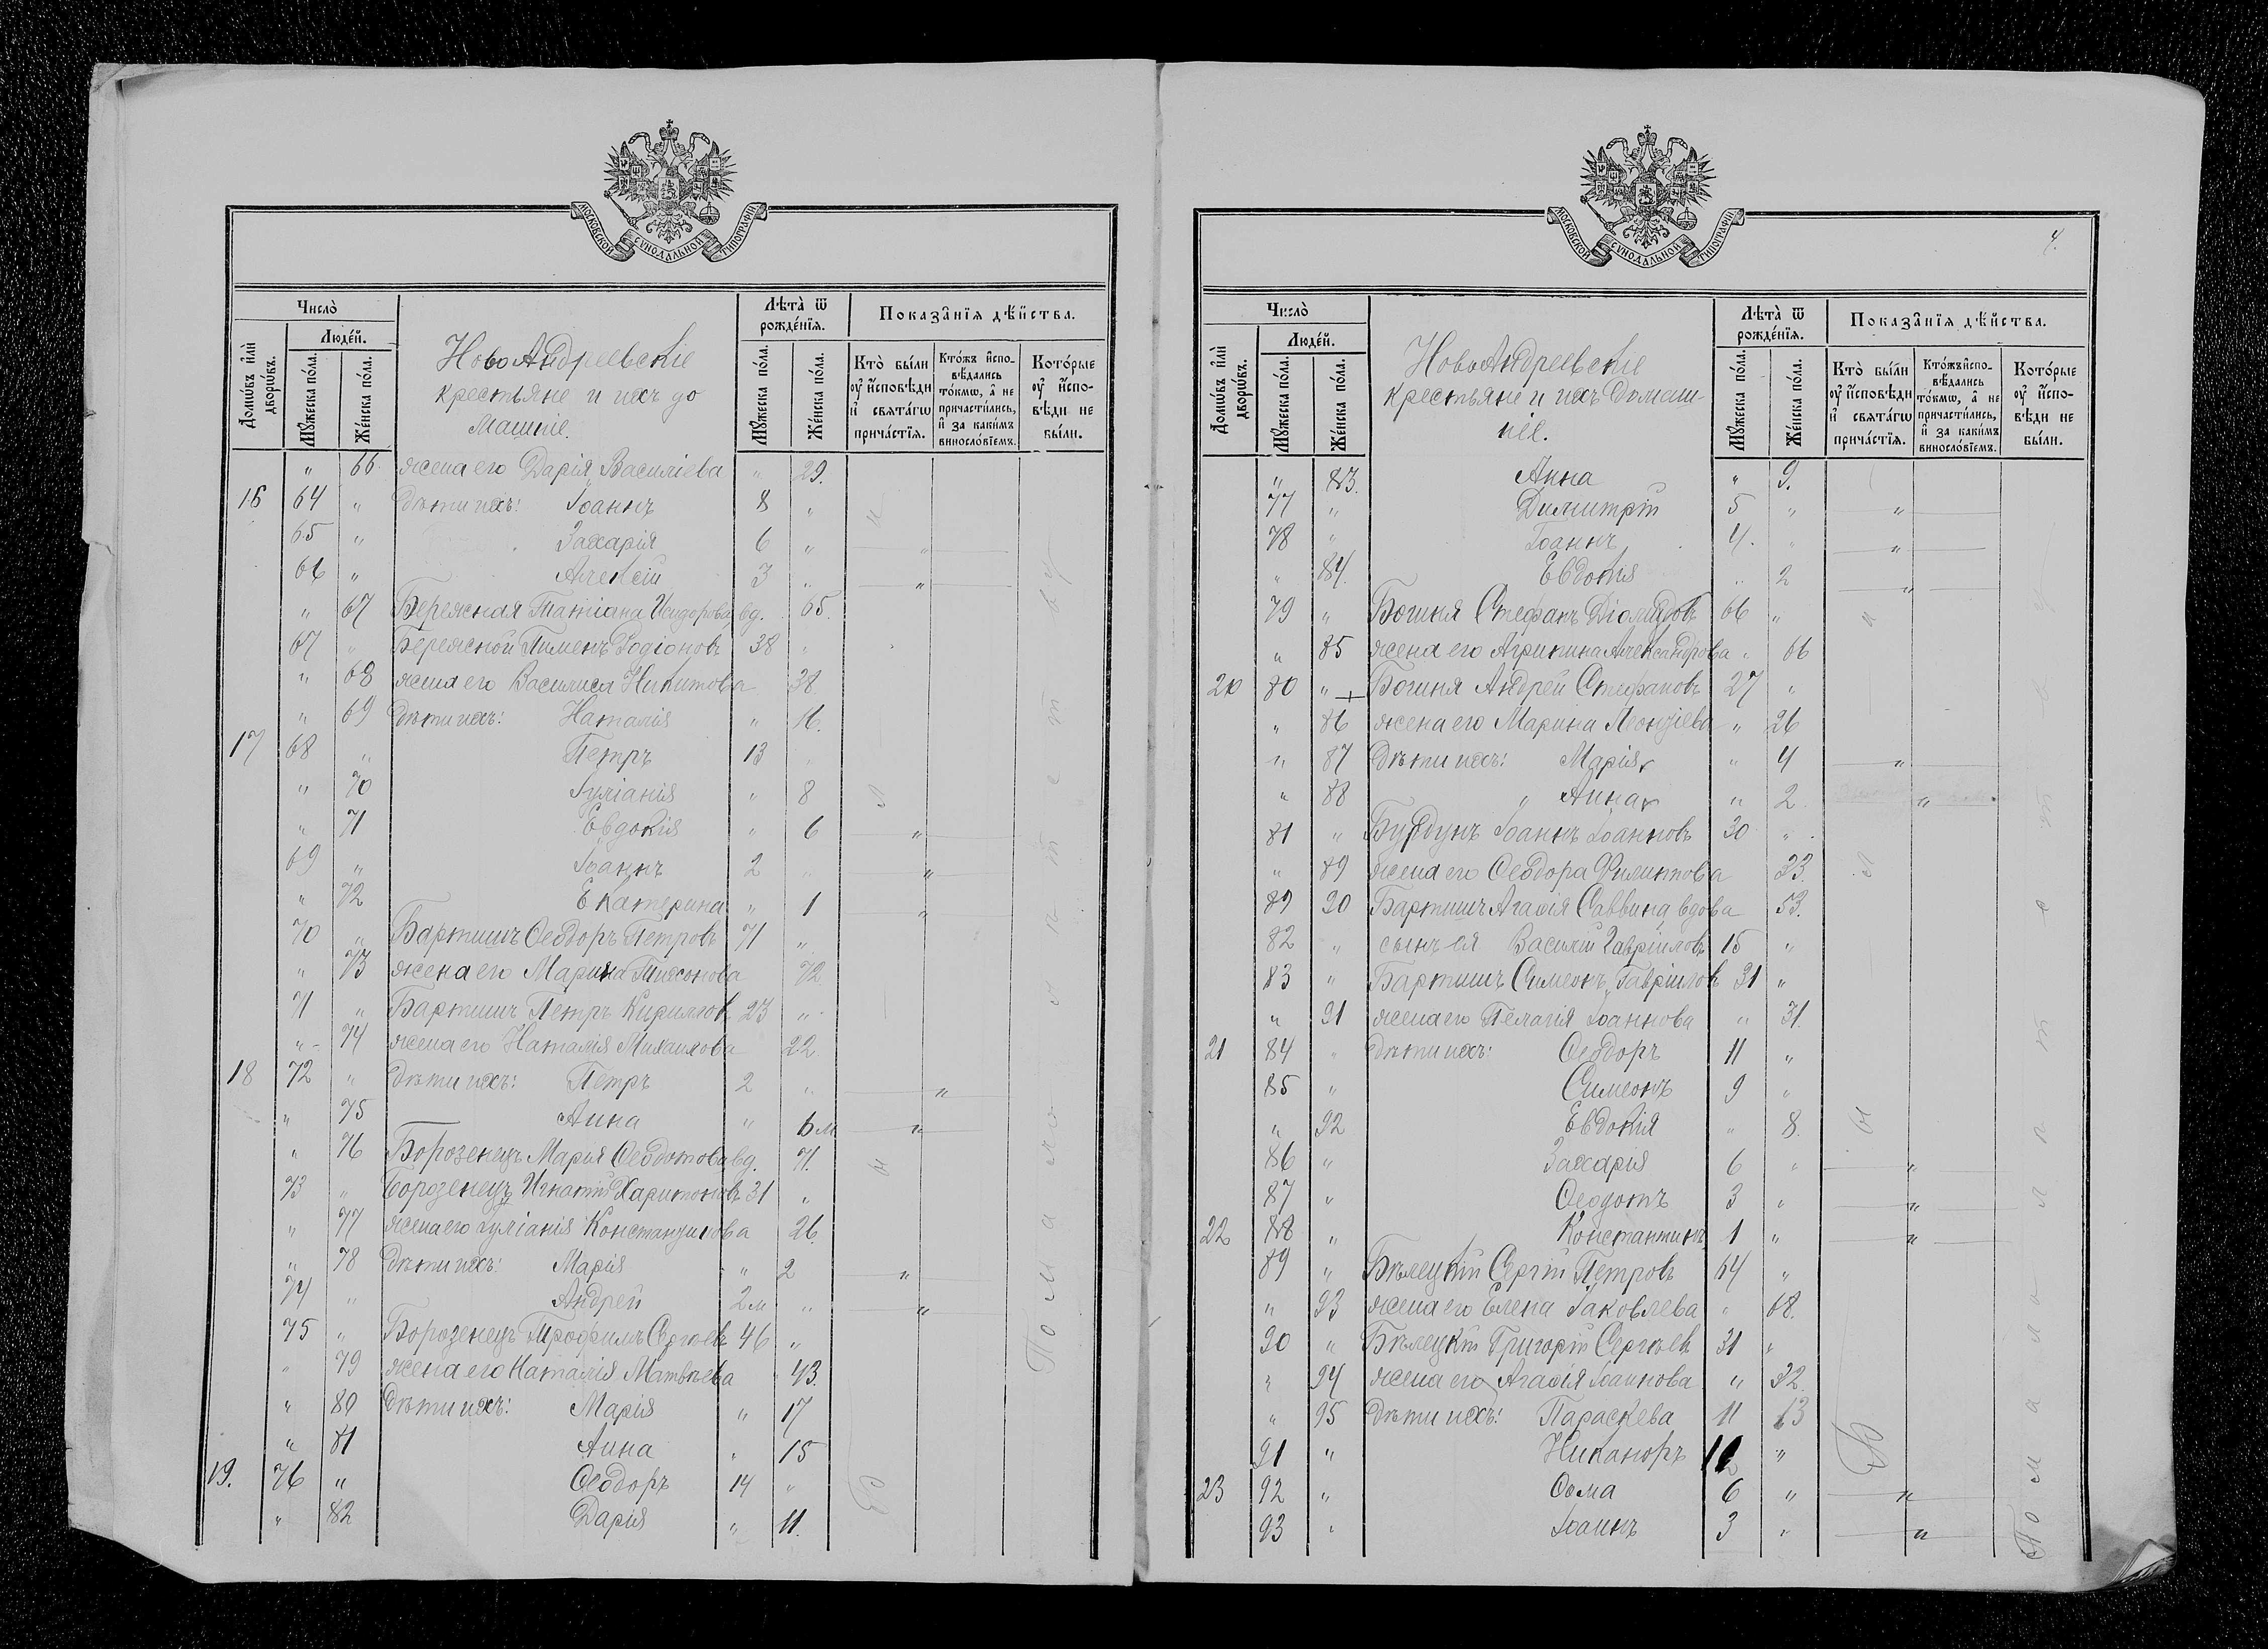 МОСКОВСКОЙ СУНОДАЛЬНОЙ ТИПОГРАФІИ
Число̀
Люде́й.
Домѡ́въ и҆лѝ дворѡ́въ.
Мꙋ́жеска по́ла.
Же́нска по́ла.
НовоАндреевскіе
крестьяне и ихъ до
машніе.
Лѣта̀ ѿ рожде́нїѧ.
Мꙋ́жеска по́ла.
Же́нска по́ла.
Показа̑нїѧ дѣ́йства.
Кто̀ бы́ли оу҆ и҆сповѣди и҆ свята́гѡ прича́стїѧ.
Кто́жъ и҆спо-вѣдались то́кмѡ, а҆ не причасти́лись, и҆ за каки́мъ винослоґвїемъ.
Кото́рые оу҆ и҆спо-вѣди не бы́ли.
" 66 жена его Дарія Василіева " 29.
16 64 " дѣти ихъ: Іоаннъ 8 "
65 " Захарія 6 " "
66 " Алексій 3 " "
" 67 Бережная Татіана Исидорова вд. 65.
67 " Бережной Пименъ Родіоновъ 38 "
" 68 жена его Василиса Никитова 38
" 69 дѣти ихъ: Наталія " 16.
17 68 " Петръ 13 "
" 70 Іуліанія " 8
" 71 Евдокія " 6 "
69 " Іоаннъ 2 " "
" 72 Екатерина " 1 "
70 " Бартишъ Ѳеодоръ Петровъ 71 "
" 73 жена его Марина Тихонова 72
71 " Бартишъ Петръ Кирилловъ 23 "
" 74 жена его Наталія Михаилова 22
18 72 " дѣти ихъ: Петръ 2 " "
" 75 Анна " 6 м "
" 76 Борозенецъ Марія Ѳеодотова вд. 71.
73 " Борозенецъ Игнатій Харитоновъ 31 "
" 77 жена его Іуліанія Константинова 26
" 78 дѣти ихъ: Марія " 2 "
74 " Андрей 2 м " "
75 " Борозенецъ Трофимъ Сергѣевъ 46 "
" 79 жена его Наталія Матвѣева " 43.
" 80 дѣти ихъ: Марія " 17
" 81 Анна " 15
19. 76 " Ѳеодоръ 14 "
" 82 Дарія " 11.
МОСКОВСКОЙ СУНОДАЛЬНОЙ ТИПОГРАФІИ
4.
Число̀
Люде́й.
Домѡ́въ и҆лѝ дворѡ́въ.
Мꙋ́жеска по́ла.
Же́нска по́ла.
НовоАндреевскіе
крестьяне и ихъ домаш-
ніе.
Лѣта̀ ѿ рожде́нїѧ.
Мꙋ́жеска по́ла.
Же́нска по́ла.
Показа̑нїѧ дѣ́йства.
Кто̀ бы́ли оу҆ и҆сповѣди и҆ свята́гѡ прича́стїѧ.
Кто́жъ и҆спо-вѣдались то́кмѡ, а҆ не причасти́лись, и҆ за каки́мъ винословїемъ.
Кото́рые оу҆ и҆спо-вѣди не бы́ли.
" 83. Анна " 9.
77 " Димитрій 5 " "
78 " Іоаннъ 4. " "
" 84. Евдокія " 2 "
79 " Богиня Стефанъ Діомидовъ 66 "
" 85 жена его Агрипина Александрова " 66
20 80 " Богиня Андрей Стефановъ 27 "
" 86 жена его Марина Леонтіева " 26
" 87 дѣти ихъ: Марія " 4 "
" 88 " Анна " 2 "
81 " Бурдунъ Іоаннъ Іоанновъ 30 "
" 89 жена его Ѳеодора Филиппова 33.
89 90 Бартишъ Агаѳія Саввина вдова 53.
82 " сынъ ея Василій Гавріиловъ 15 "
83 " Бартишъ Симеонъ Гавріиловъ 31 "
" 91 жена его Пелагія Іоаннова " 31.
21 84 " дѣти ихъ: Ѳеодоръ 11 "
85 " Симеонъ 9 "
" 92 Евдокія " 8.
86 " Захарія 6 " "
87 " Ѳеодотъ 3 " "
22 88 " Константинъ 1 " "
89 " Бѣлецкій Сергій Петровъ 64 "
" 93 жена его Елена Іаковлева " 68.
90 " Бѣлецкій Григорій Сергѣевъ 31 "
" 94 жена его Агаѳія Іоаннова " 32.
" 95 дѣти ихъ: Параскева 11 13
91 " Никаноръ "
23 92 " Ѳома 6 " "
93 " Іоаннъ 3 " "